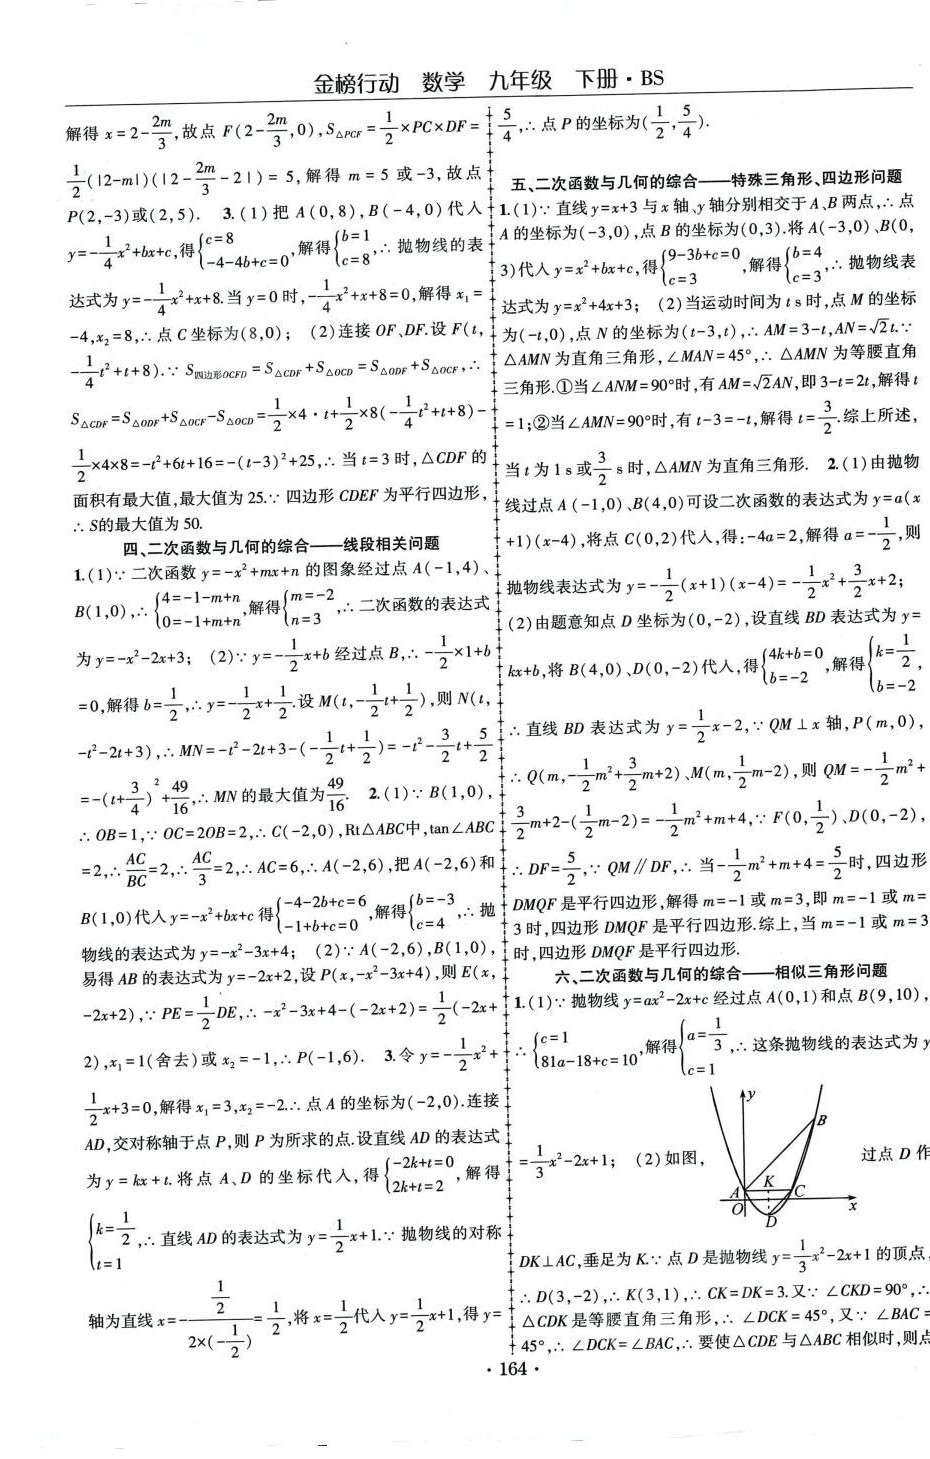 金榜行动 数学 九年级 下册·BS
解得 x=2-2m/3,故点 F(2-2m/3,0),S△PCF=1/2×PC×DF=
1/2(|2-m|)(|2-2m/3-2|)=5,解得 m=5 或-3,故点
P(2,-3)或(2,5). 3.(1)把 A(0,8),B(-4,0)代入
y=-1/4x²+bx+c,得{c=8 -4-4b+c=0,解得{b=1 c=8,∴抛物线的表
达式为 y=-1/4x²+x+8.当 y=0 时,-1/4x²+x+8=0,解得 x₁=
-4,x₂=8,∴点 C 坐标为(8,0); (2)连接 OF、DF.设 F(t,
-1/4t²+t+8).∵S四边形OCFD=S△CDF+S△OCD=S△ODF+S△OCF,∴
S△CDF=S△ODF+S△OCF-S△OCD=1/2×4·t+1/2×8(-1/4t²+t+8)-
1/2×4×8=-t²+6t+16=-(t-3)²+25,∴当 t=3 时,△CDF 的
面积有最大值,最大值为 25.∵四边形 CDEF 为平行四边形,
∴S的最大值为 50.
四、二次函数与几何的综合——线段相关问题
1.(1)∵二次函数 y=-x²+mx+n 的图象经过点 A(-1,4)、
B(1,0),∴{4=-1-m+n 0=-1+m+n,解得{m=-2 n=3,∴二次函数的表达式
为 y=-x²-2x+3; (2)∵y=-1/2x+b 经过点 B,∴-1/2×1+b
=0,解得 b=1/2,∴y=-1/2x+1/2.设 M(t,-1/2t+1/2),则 N(t,
-t²-2t+3),∴MN=-t²-2t+3-(-1/2t+1/2)=-t²-3/2t+5/2
=-(t+3/4)²+49/16,∴MN 的最大值为49/16. 2.(1)∵B(1,0),
∴OB=1,∵OC=2OB=2,∴C(-2,0),Rt△ABC中,tan∠ABC
=2,∴AC/BC=2,∴AC/3=2,∴AC=6,∴A(-2,6),把 A(-2,6)和
B(1,0)代入 y=-x²+bx+c 得{-4-2b+c=6 -1+b+c=0,解得{b=-3 c=4,∴抛
物线的表达式为 y=-x²-3x+4; (2)∵A(-2,6),B(1,0),
易得 AB 的表达式为 y=-2x+2,设 P(x,-x²-3x+4),则 E(x,
-2x+2),∵PE=1/2DE,∴-x²-3x+4-(-2x+2)=1/2(-2x+
2),x₁=1(舍去)或 x₂=-1,∴P(-1,6). 3.令 y=-1/2x²+
1/2x+3=0,解得 x₁=3,x₂=-2.∴点 A 的坐标为(-2,0).连接
AD,交对称轴于点 P,则 P 为所求的点.设直线 AD 的表达式
为 y=kx+t.将点 A、D 的坐标代入,得{-2k+t=0 2k+t=2,解得
{k=1/2 t=1,∴直线 AD 的表达式为 y=1/2x+1.∵抛物线的对称
轴为直线 x=-(1/2)/(2×(-1/2))=1/2,将 x=1/2代入 y=1/2x+1,得 y=
5/4,∴点 P 的坐标为(1/2,5/4).
五、二次函数与几何的综合——特殊三角形、四边形问题
1.(1)∵直线 y=x+3 与 x 轴、y 轴分别相交于 A、B 两点,∴点
A 的坐标为(-3,0),点 B 的坐标为(0,3).将 A(-3,0)、B(0,
3)代入 y=x²+bx+c,得{9-3b+c=0 c=3,解得{b=4 c=3,∴抛物线表
达式为 y=x²+4x+3; (2)当运动时间为 t s 时,点 M 的坐标
为(-t,0),点 N 的坐标为(t-3,t),∴AM=3-t,AN=√2t.∵
△AMN 为直角三角形,∠MAN=45°,∴△AMN 为等腰直角
三角形.①当∠ANM=90°时,有 AM=√2AN,即 3-t=2t,解得 t
=1;②当∠AMN=90°时,有 t-3=-t,解得 t=3/2.综上所述,
当 t 为 1 s 或3/2 s 时,△AMN 为直角三角形. 2.(1)由抛物
线过点 A(-1,0)、B(4,0)可设二次函数的表达式为 y=a(x
+1)(x-4),将点 C(0,2)代入,得:-4a=2,解得 a=-1/2,则
抛物线表达式为 y=-1/2(x+1)(x-4)=-1/2x²+3/2x+2;
(2)由题意知点 D 坐标为(0,-2),设直线 BD 表达式为 y=
kx+b,将 B(4,0)、D(0,-2)代入,得{4k+b=0 b=-2,解得{k=1/2, b=-2
∴直线 BD 表达式为 y=1/2x-2,∵QM⊥x 轴,P(m,0),
∴Q(m,-1/2m²+3/2m+2)、M(m,1/2m-2),则 QM=-1/2m²+
3/2m+2-(1/2m-2)=-1/2m²+m+4,∵F(0,1/2)、D(0,-2),
∴DF=5/2,∵QM∥DF,∴当-1/2m²+m+4=5/2时,四边形
DMQF 是平行四边形,解得 m=-1 或 m=3,即 m=-1 或 m=
3 时,四边形 DMQF 是平行四边形.综上,当 m=-1 或 m=3
时,四边形 DMQF 是平行四边形.
六、二次函数与几何的综合——相似三角形问题
1.(1)∵抛物线 y=ax²-2x+c 经过点 A(0,1)和点 B(9,10),
∴{c=1 81a-18+c=10,解得{a=1/3 c=1,∴这条抛物线的表达式为 y
=1/3x²-2x+1; (2)如图, 过点 D 作
y
B
A
K
C
O
D
x
DK⊥AC,垂足为 K.∵点 D 是抛物线 y=1/3x²-2x+1 的顶点,
∴D(3,-2),∴K(3,1),∴CK=DK=3.又∵∠CKD=90°,∴
△CDK 是等腰直角三角形,∴∠DCK=45°,又∵∠BAC=
45°,∴∠DCK=∠BAC,∴要使△CDE 与△ABC 相似时,则点
·164·